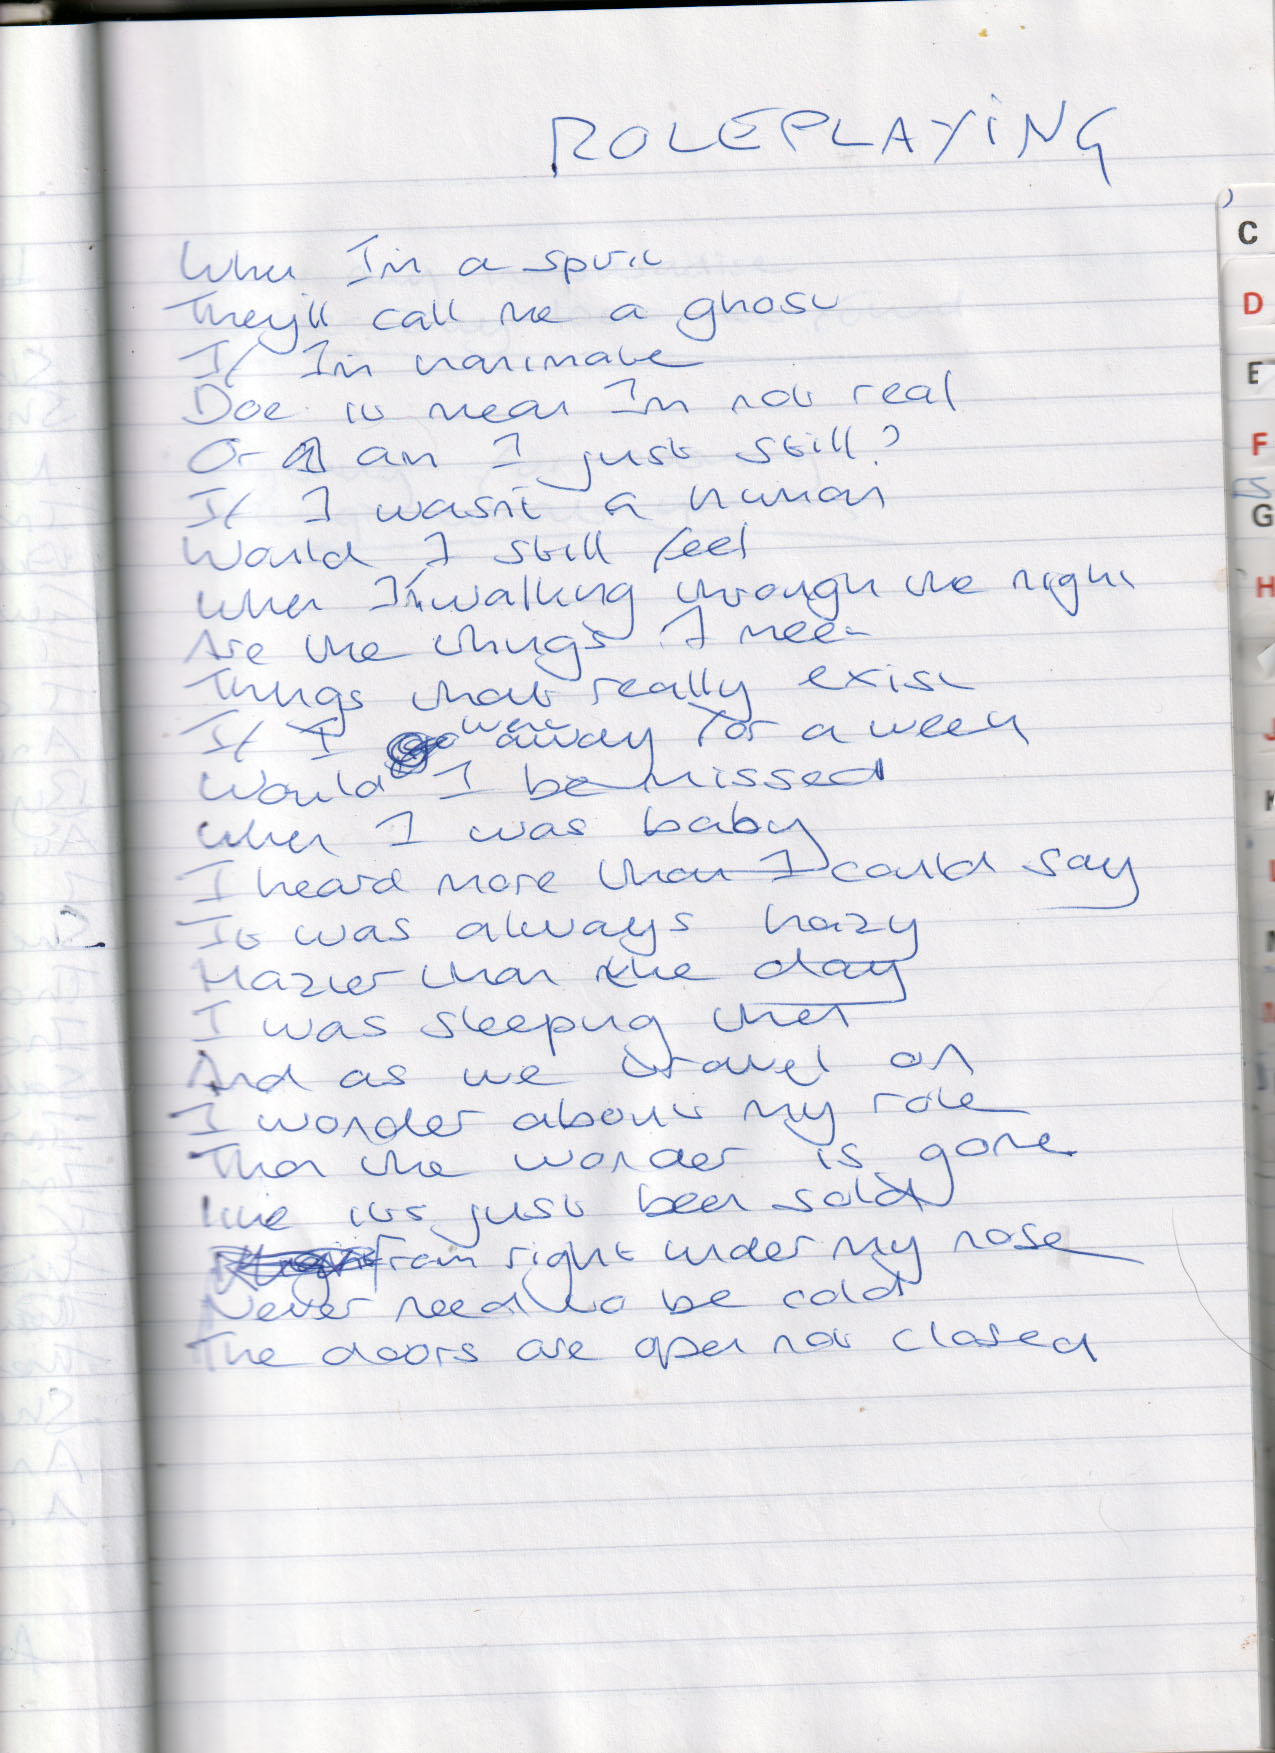 ROLEPLAYING
When I'm a spirit
They'll call me a ghost
If I'm inanimate
Doe it mean I'm not real
Or am I just still?
If I wasn't a human
Would I still feel
When I'm walking through the night
Are the things I meet
Things that really exist
If I went away for a week
Would I be missed
When I was baby
I heard more than I could say
It was always hazy
Hazier than the day
I was sleeping then
And as we travel on
I wonder about my role
Than the wonder is gone
like its just been sold
from right under my nose
Never need to be cold
The doors are open not closed
C
D
E
F
G
H
J
K
L